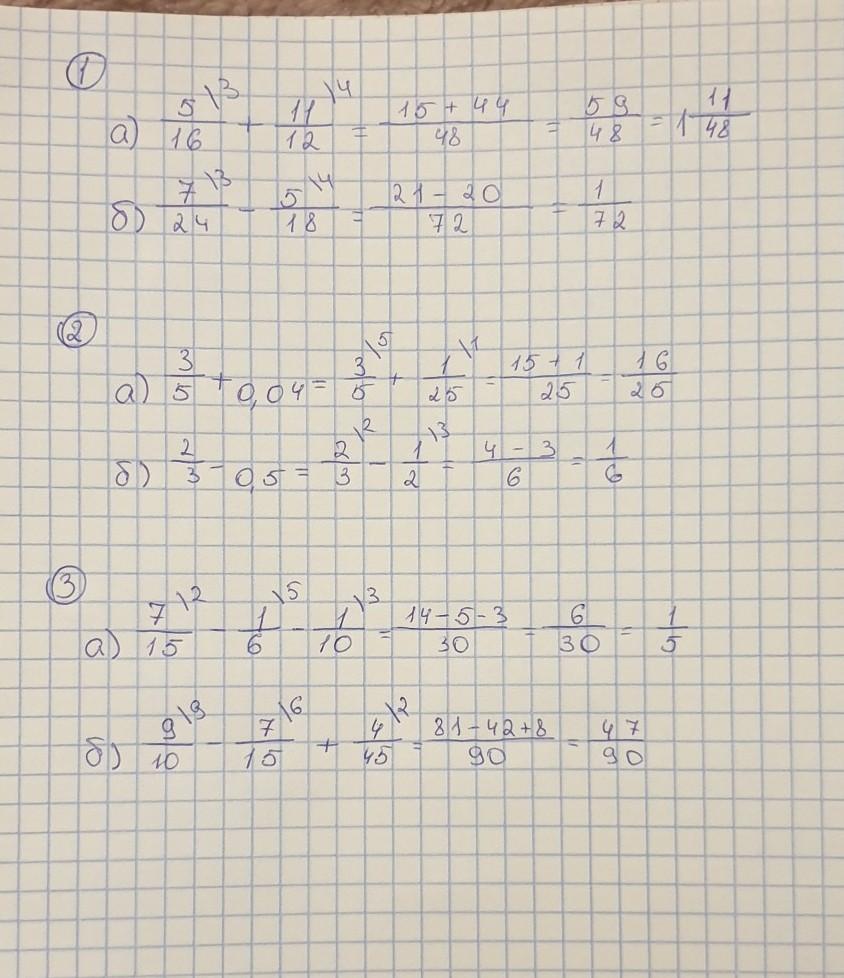 1
а) 5/16 \3 + 11/12 \4 = (15 + 44)/48 = 59/48 = 1 11/48
б) 7/24 \3 − 5/18 \4 = (21 − 20)/72 = 1/72
2
а) 3/5 + 0,04 = 3/5 \5 + 1/25 \1 = (15 + 1)/25 = 16/25
б) 2/3 − 0,5 = 2/3 \2 − 1/2 \3 = (4 − 3)/6 = 1/6
3
а) 7/15 \2 − 1/6 \5 − 1/10 \3 = (14 − 5 − 3)/30 = 6/30 = 1/5
б) 9/10 \9 − 7/15 \6 + 4/45 \2 = (81 − 42 + 8)/90 = 47/90